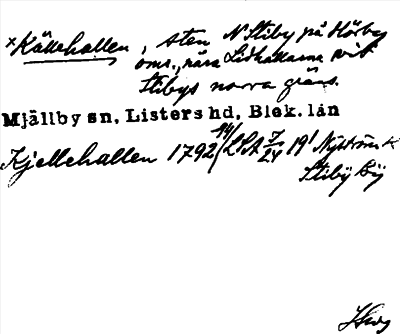 × Källehallen, sten N Stiby på Hörby
omr., nära Lidhallarna vid
Stibys norra gräns.
Mjällby sn. Listers hd, Blek. län
Kjellehallen 1792 LSA 19 Nyström
Stiby By